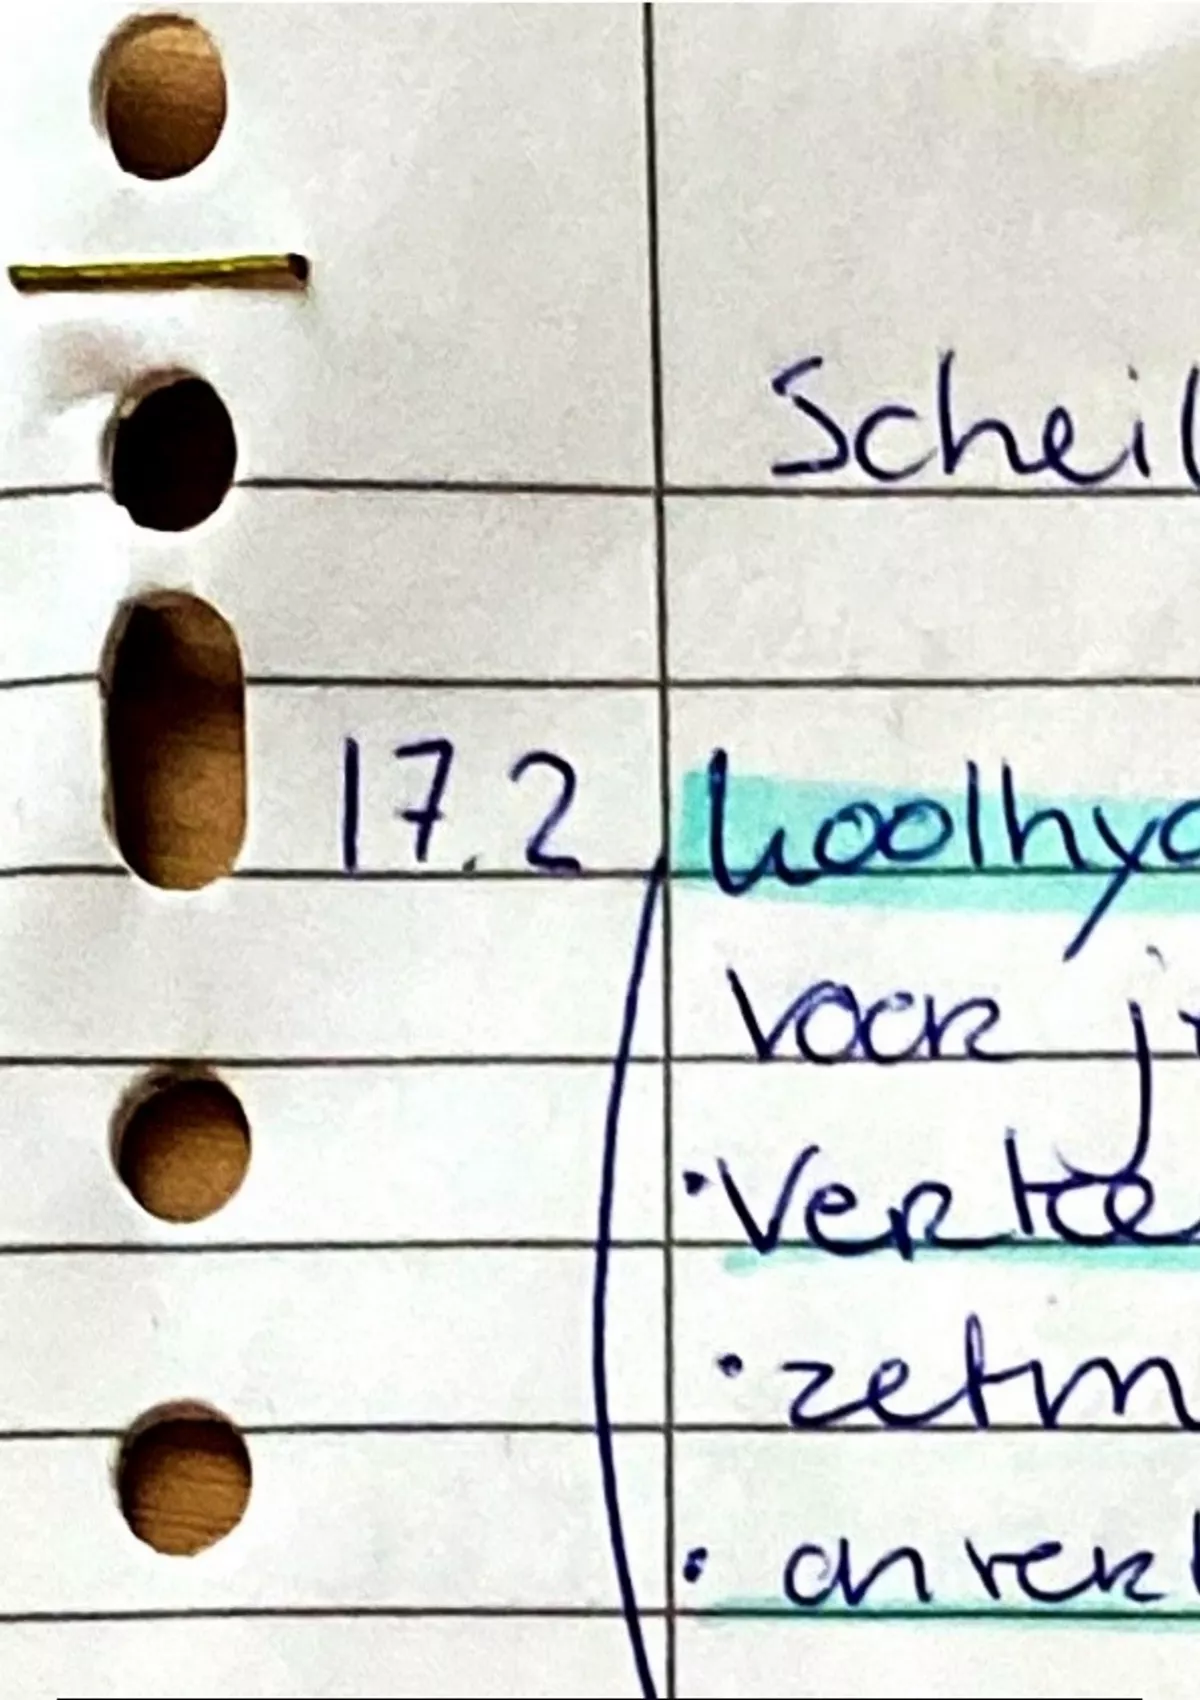 Scheil
17.2 koolhyd
voor j
• Vertee
• zetm
• onvert